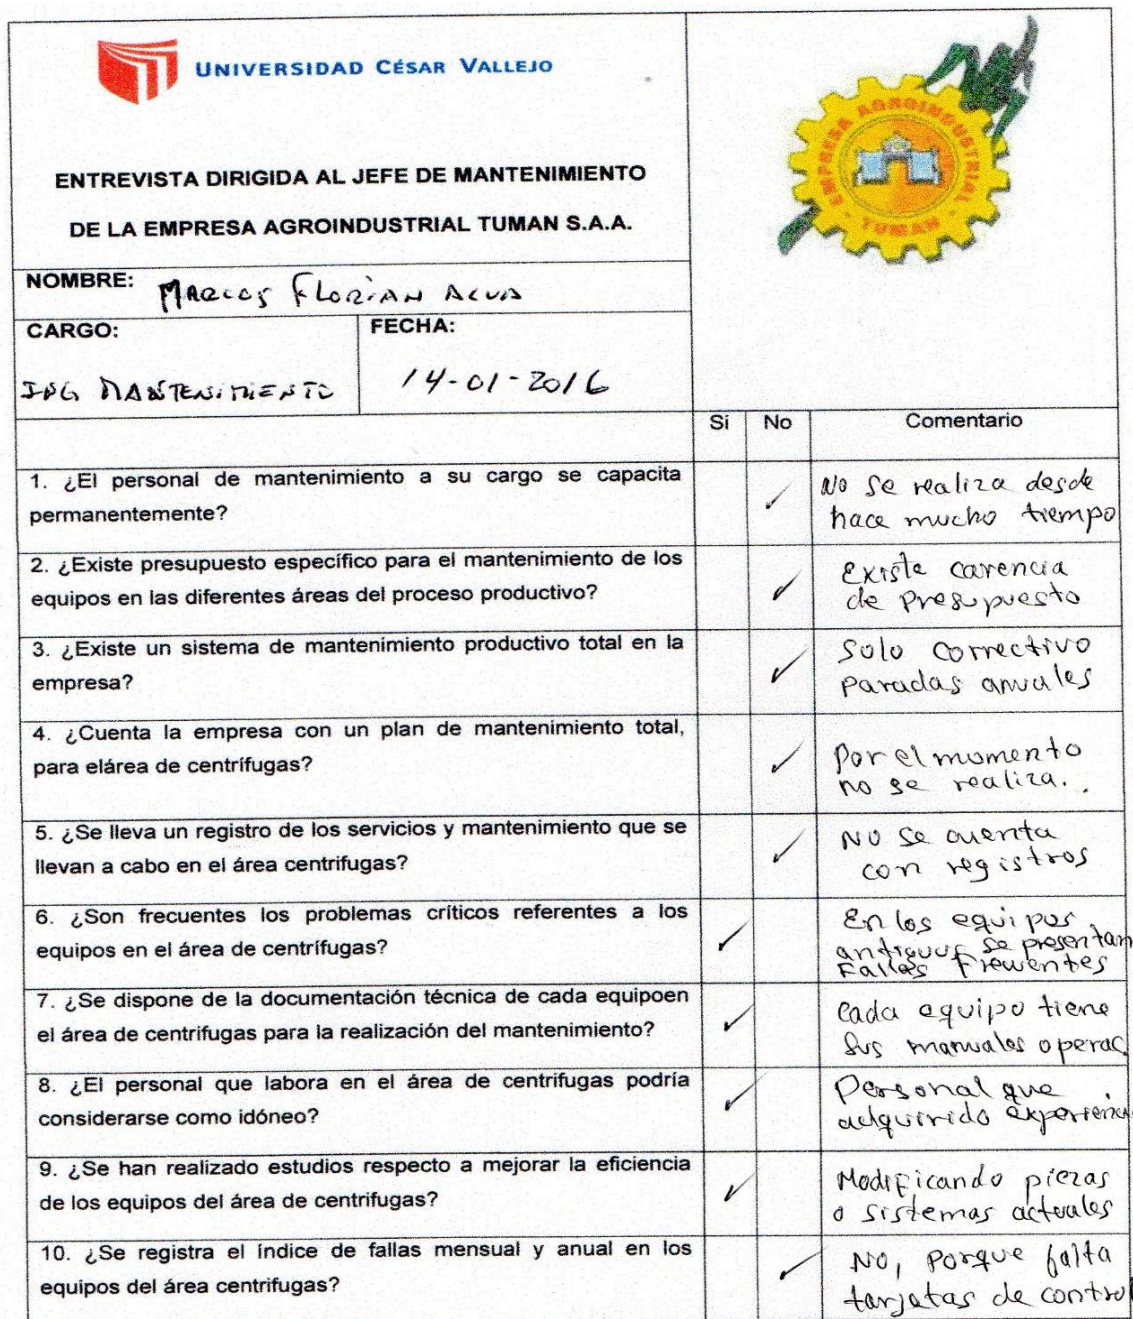 UNIVERSIDAD CÉSAR VALLEJO
EMPRESA AGROINDUSTRIAL
- TUMAN -
ENTREVISTA DIRIGIDA AL JEFE DE MANTENIMIENTO
DE LA EMPRESA AGROINDUSTRIAL TUMAN S.A.A.
NOMBRE: MARCOS FLORIAN ALVA
CARGO: FECHA:
ING MANTENIMIENTO 14-01-2016
Si No Comentario
1. ¿El personal de mantenimiento a su cargo se capacita
permanentemente?
✓
No se realiza desde
hace mucho tiempo
2. ¿Existe presupuesto específico para el mantenimiento de los
equipos en las diferentes áreas del proceso productivo?
✓
Existe carencia
de presupuesto
3. ¿Existe un sistema de mantenimiento productivo total en la
empresa?
✓
Solo correctivo
paradas anuales
4. ¿Cuenta la empresa con un plan de mantenimiento total,
para elárea de centrífugas?
✓
Por el momento
no se realiza..
5. ¿Se lleva un registro de los servicios y mantenimiento que se
llevan a cabo en el área centrifugas?
✓
No se cuenta
con registros
6. ¿Son frecuentes los problemas críticos referentes a los
equipos en el área de centrífugas?
✓
En los equipos
antiguos se presentan
Fallas Frecuentes
7. ¿Se dispone de la documentación técnica de cada equipoen
el área de centrifugas para la realización del mantenimiento?
✓
Cada equipo tiene
sus manuales operac
8. ¿El personal que labora en el área de centrifugas podría
considerarse como idóneo?
✓
Personal que
adquirido experiencia
9. ¿Se han realizado estudios respecto a mejorar la eficiencia
de los equipos del área de centrifugas?
✓
Modificando piezas
o sistemas actuales
10. ¿Se registra el índice de fallas mensual y anual en los
equipos del área centrifugas?
✓
No, porque falta
tarjetas de control